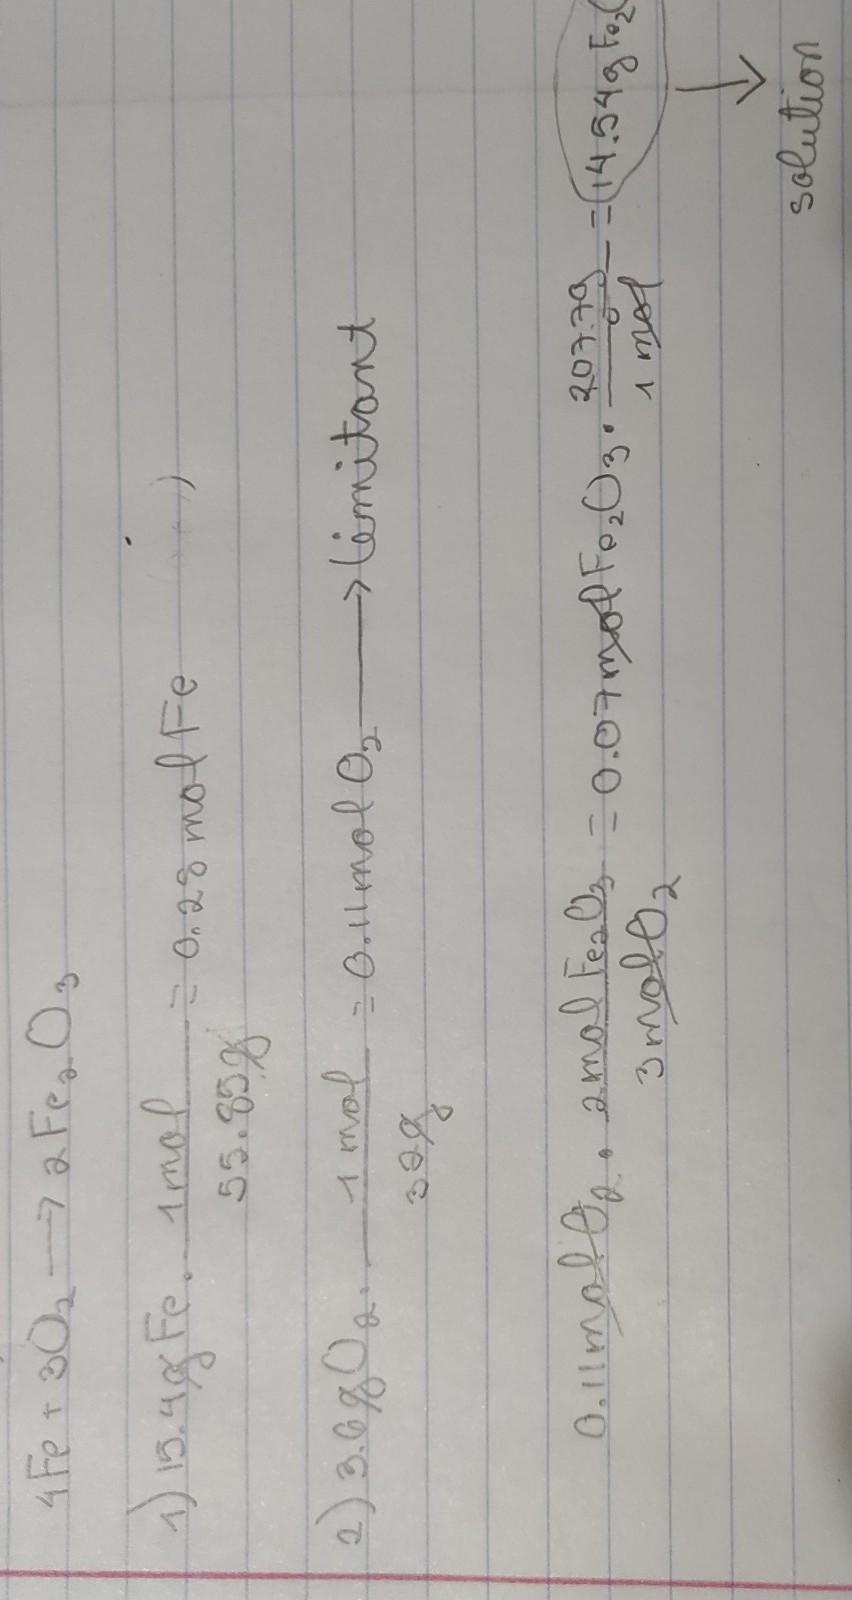 4Fe + 3O₂ → 2Fe₂O₃
1) 15.4g Fe · 1 mol / 55.85g = 0.28 mol Fe
2) 3.6g O₂ · 1 mol / 32g = 0.11 mol O₂ → limitant
0.11 mol O₂ · 2 mol Fe₂O₃ / 3 mol O₂ = 0.07 mol Fe₂O₃ · 207.7g / 1 mol = 14.54g Fe₂
→ solution